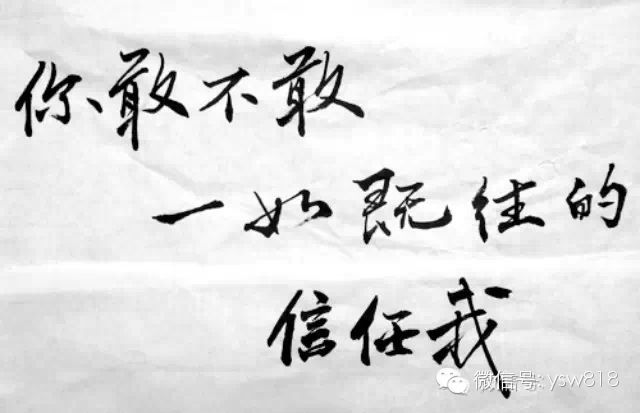 你敢不敢
一如既往的
信任我
微信号: ysw818